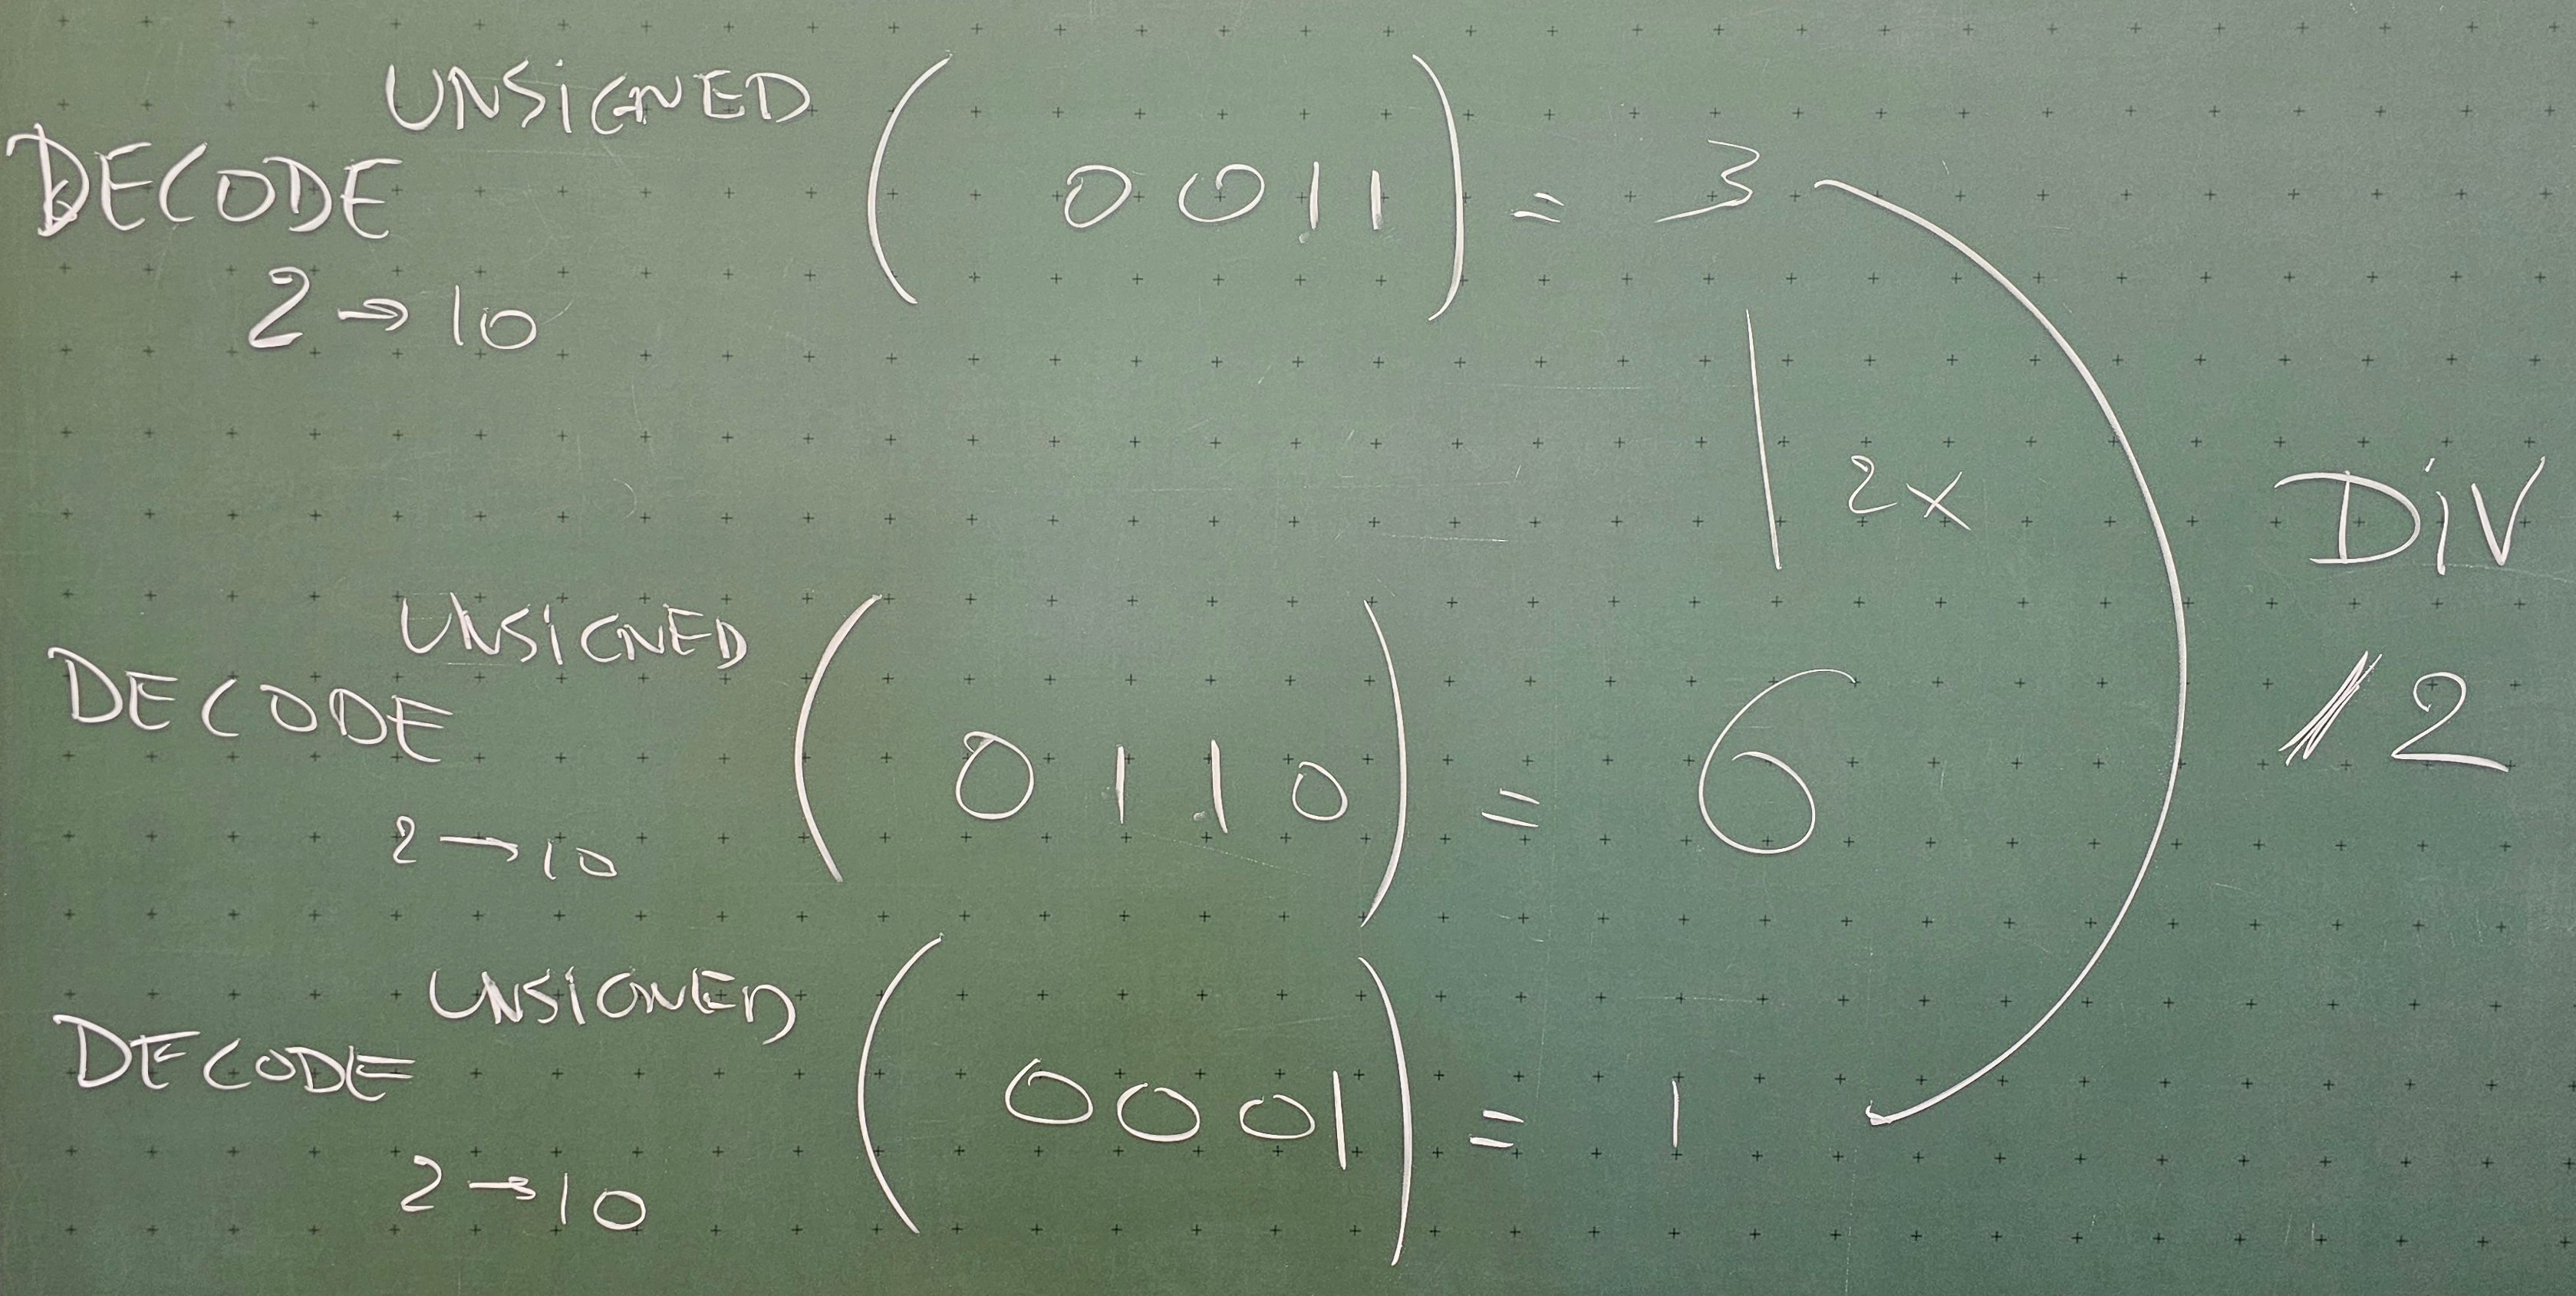 DECODE UNSIGNED 2 → 10 ( 0 0 1 1 ) = 3
| 2x
DECODE UNSIGNED 2 → 10 ( 0 1 1 0 ) = 6
DIV 2
DECODE UNSIGNED 2 → 10 ( 0 0 0 1 ) = 1